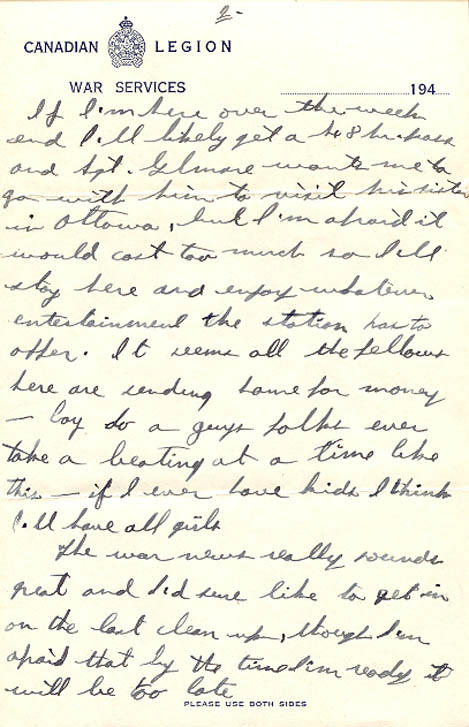 2-
CANADIAN LEGION
WAR SERVICES
194
If I'm here over the week
end I'll likely get a 48 hr. pass
and Sgt. Gilmore wants me to
go with him to visit his sister
in Ottawa, but I'm afraid it
would cost too much so I'll
stay here and enjoy whatever
entertainment the station has to
offer. It seems all the fellows
here are sending home for money
— boy do a guys folks ever
take a beating at a time like
this — if I ever have kids I think
I'll have all girls
The war news really sounds
great and I'd sure like to get in
on the last clean up, though I'm
afraid that by the time I'm ready it
will be too late
PLEASE USE BOTH SIDES